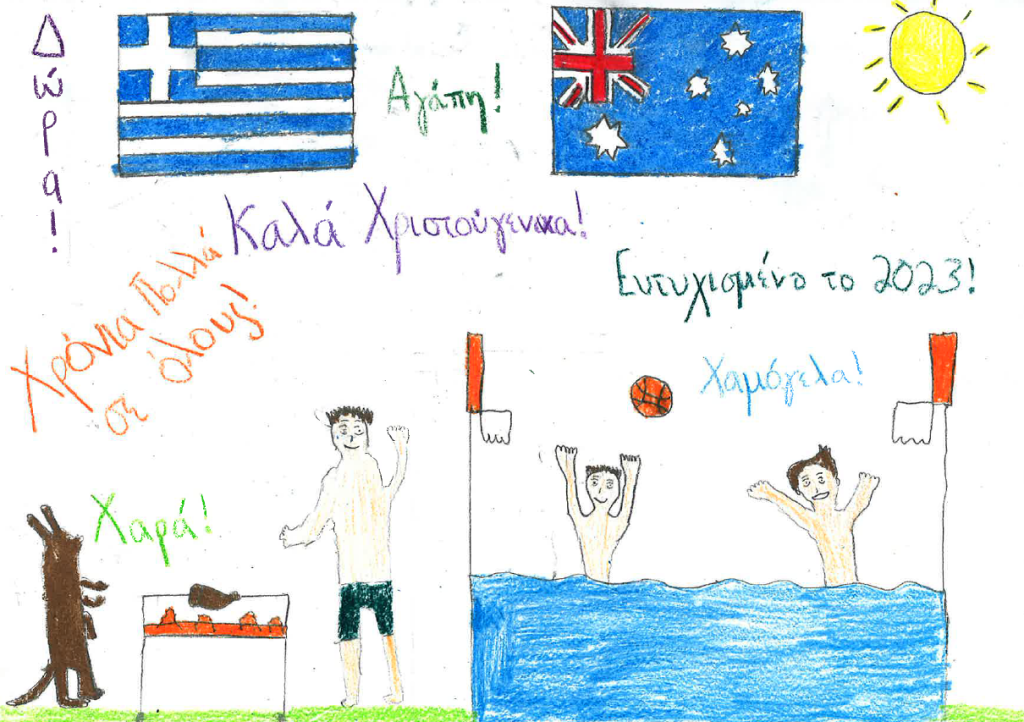 Δώρα!
Αγάπη!
Καλά Χριστούγεννα!
Ευτυχισμένο το 2023!
Χρόνια Πολλά
σε όλους!
Χαμόγελα!
Χαρά!